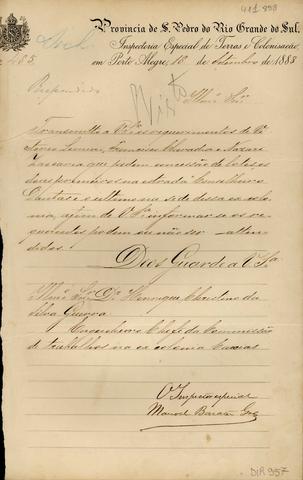 481 898
Provincia de S. Pedro do Rio Grande do Sul,
Inspectoria Especial de Terras e Colonisação,
em Porto Alegre, 10 de Setembro de 1888
485
Respondido
Visto
Illmo Snr
Transmitto a Vª Sª os requerimentos de
Francisco e Nazari
Zaccaria que pedem concessão de lotes
na estrada Conselheiro
Dantas e o ultimo na séde dessa ex colo-
nia, afim de V. Sª informar se os re-
querentes podem ou não ser atten-
didos.
Deos Guarde a V. Sª
Illmo Snr Dr Henrique Christino da
Silva Guerra
Engenheiro Chefe da Commissão
de trabalhos na ex colonia Caxias
O Inspector especial
Manoel
DIR 957